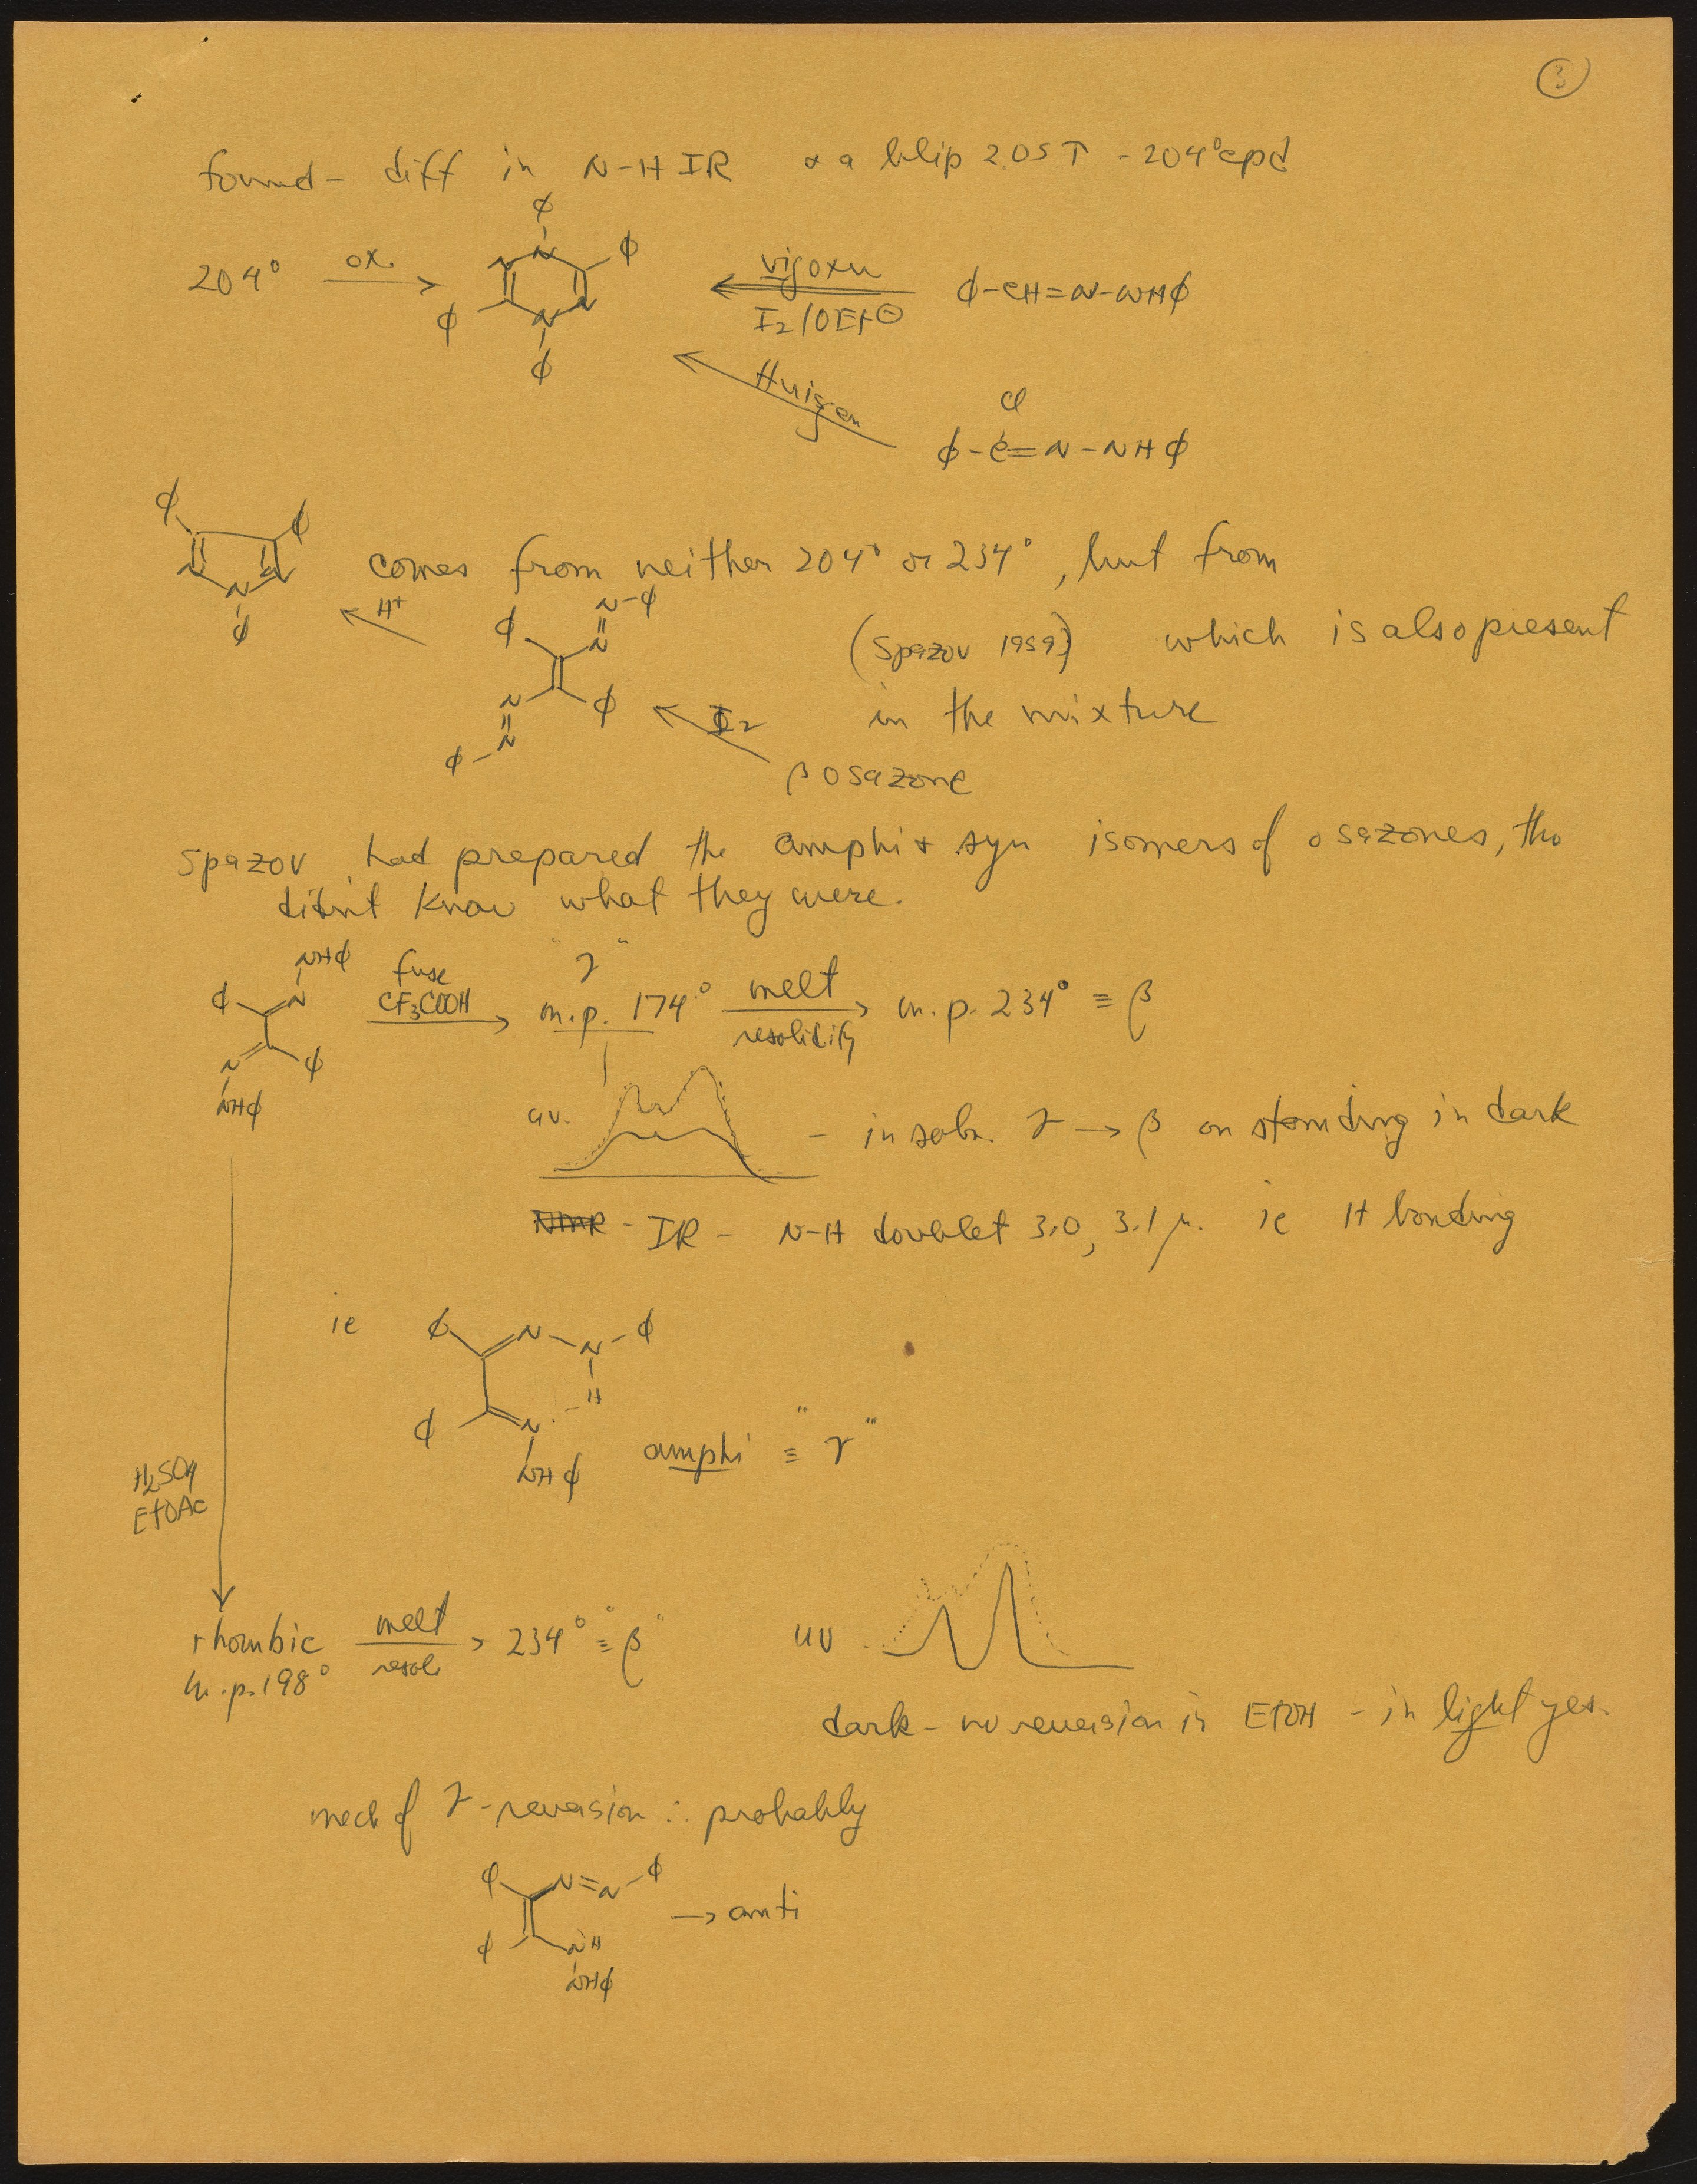 3
found - diff in N-H IR & a blip 2.05 τ - 204° cpd
φ
204° ox. N N φ vigoxu φ-CH=N-NHφ
φ N N I2/OEt⊖
φ
Huisgen Cl
φ-C=N-NHφ
φ φ
N N N comes from neither 204° or 234°, but from
φ H+ φ N-φ
N (Spazov 1959) which is also present
N φ I2 in the mixture
φ-N β osazone
Spazov had prepared the amphi & syn isomers of osazones, tho
didn't know what they were.
NHφ fuse "γ"
φ N CF3COOH m.p. 174° melt m.p. 234° ≡ β
N φ resolidify
NHφ
uv. - in soln. γ → β on standing in dark
NMR - IR - N-H doublet 3.0, 3.1 μ. ie H bonding
ie φ N-N-φ
H
φ N
NHφ amphi ≡ "γ"
H2SO4
EtOAc
rhombic melt 234° ≡ "β" uv
m.p. 198° resol.
dark - no reversion in EtOH - in light yes.
mech of γ-reversion ∴ probably
φ N=N-φ
→ anti
φ NH
NHφ